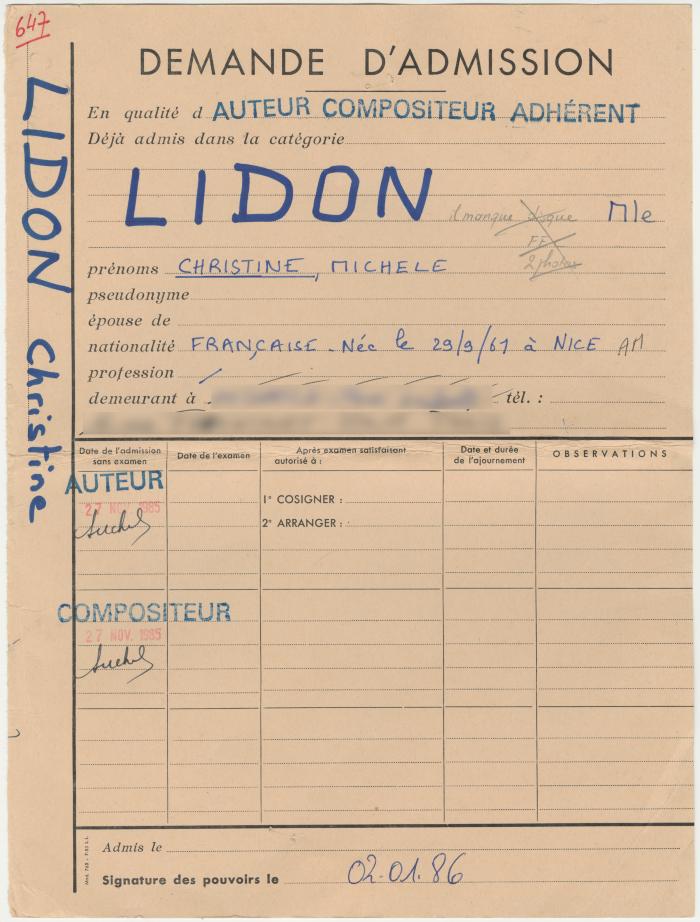 647
LIDON Christine
DEMANDE D'ADMISSION
En qualité d AUTEUR COMPOSITEUR ADHÉRENT
Déjà admis dans la catégorie
LIDON Mle
il manque disque
FF
2 photos
prénoms CHRISTINE, MICHELE
pseudonyme
épouse de
nationalité FRANÇAISE - Née le 29/9/61 à NICE AM
profession
demeurant à tél. :
Date de l'admission sans examen
Date de l'examen
Après examen satisfaisant autorisé à :
Date et durée de l'ajournement
OBSERVATIONS
AUTEUR
27 NOV 1985
1° COSIGNER :
2° ARRANGER :
COMPOSITEUR
27 NOV. 1985
Admis le
Signature des pouvoirs le 02.01.86